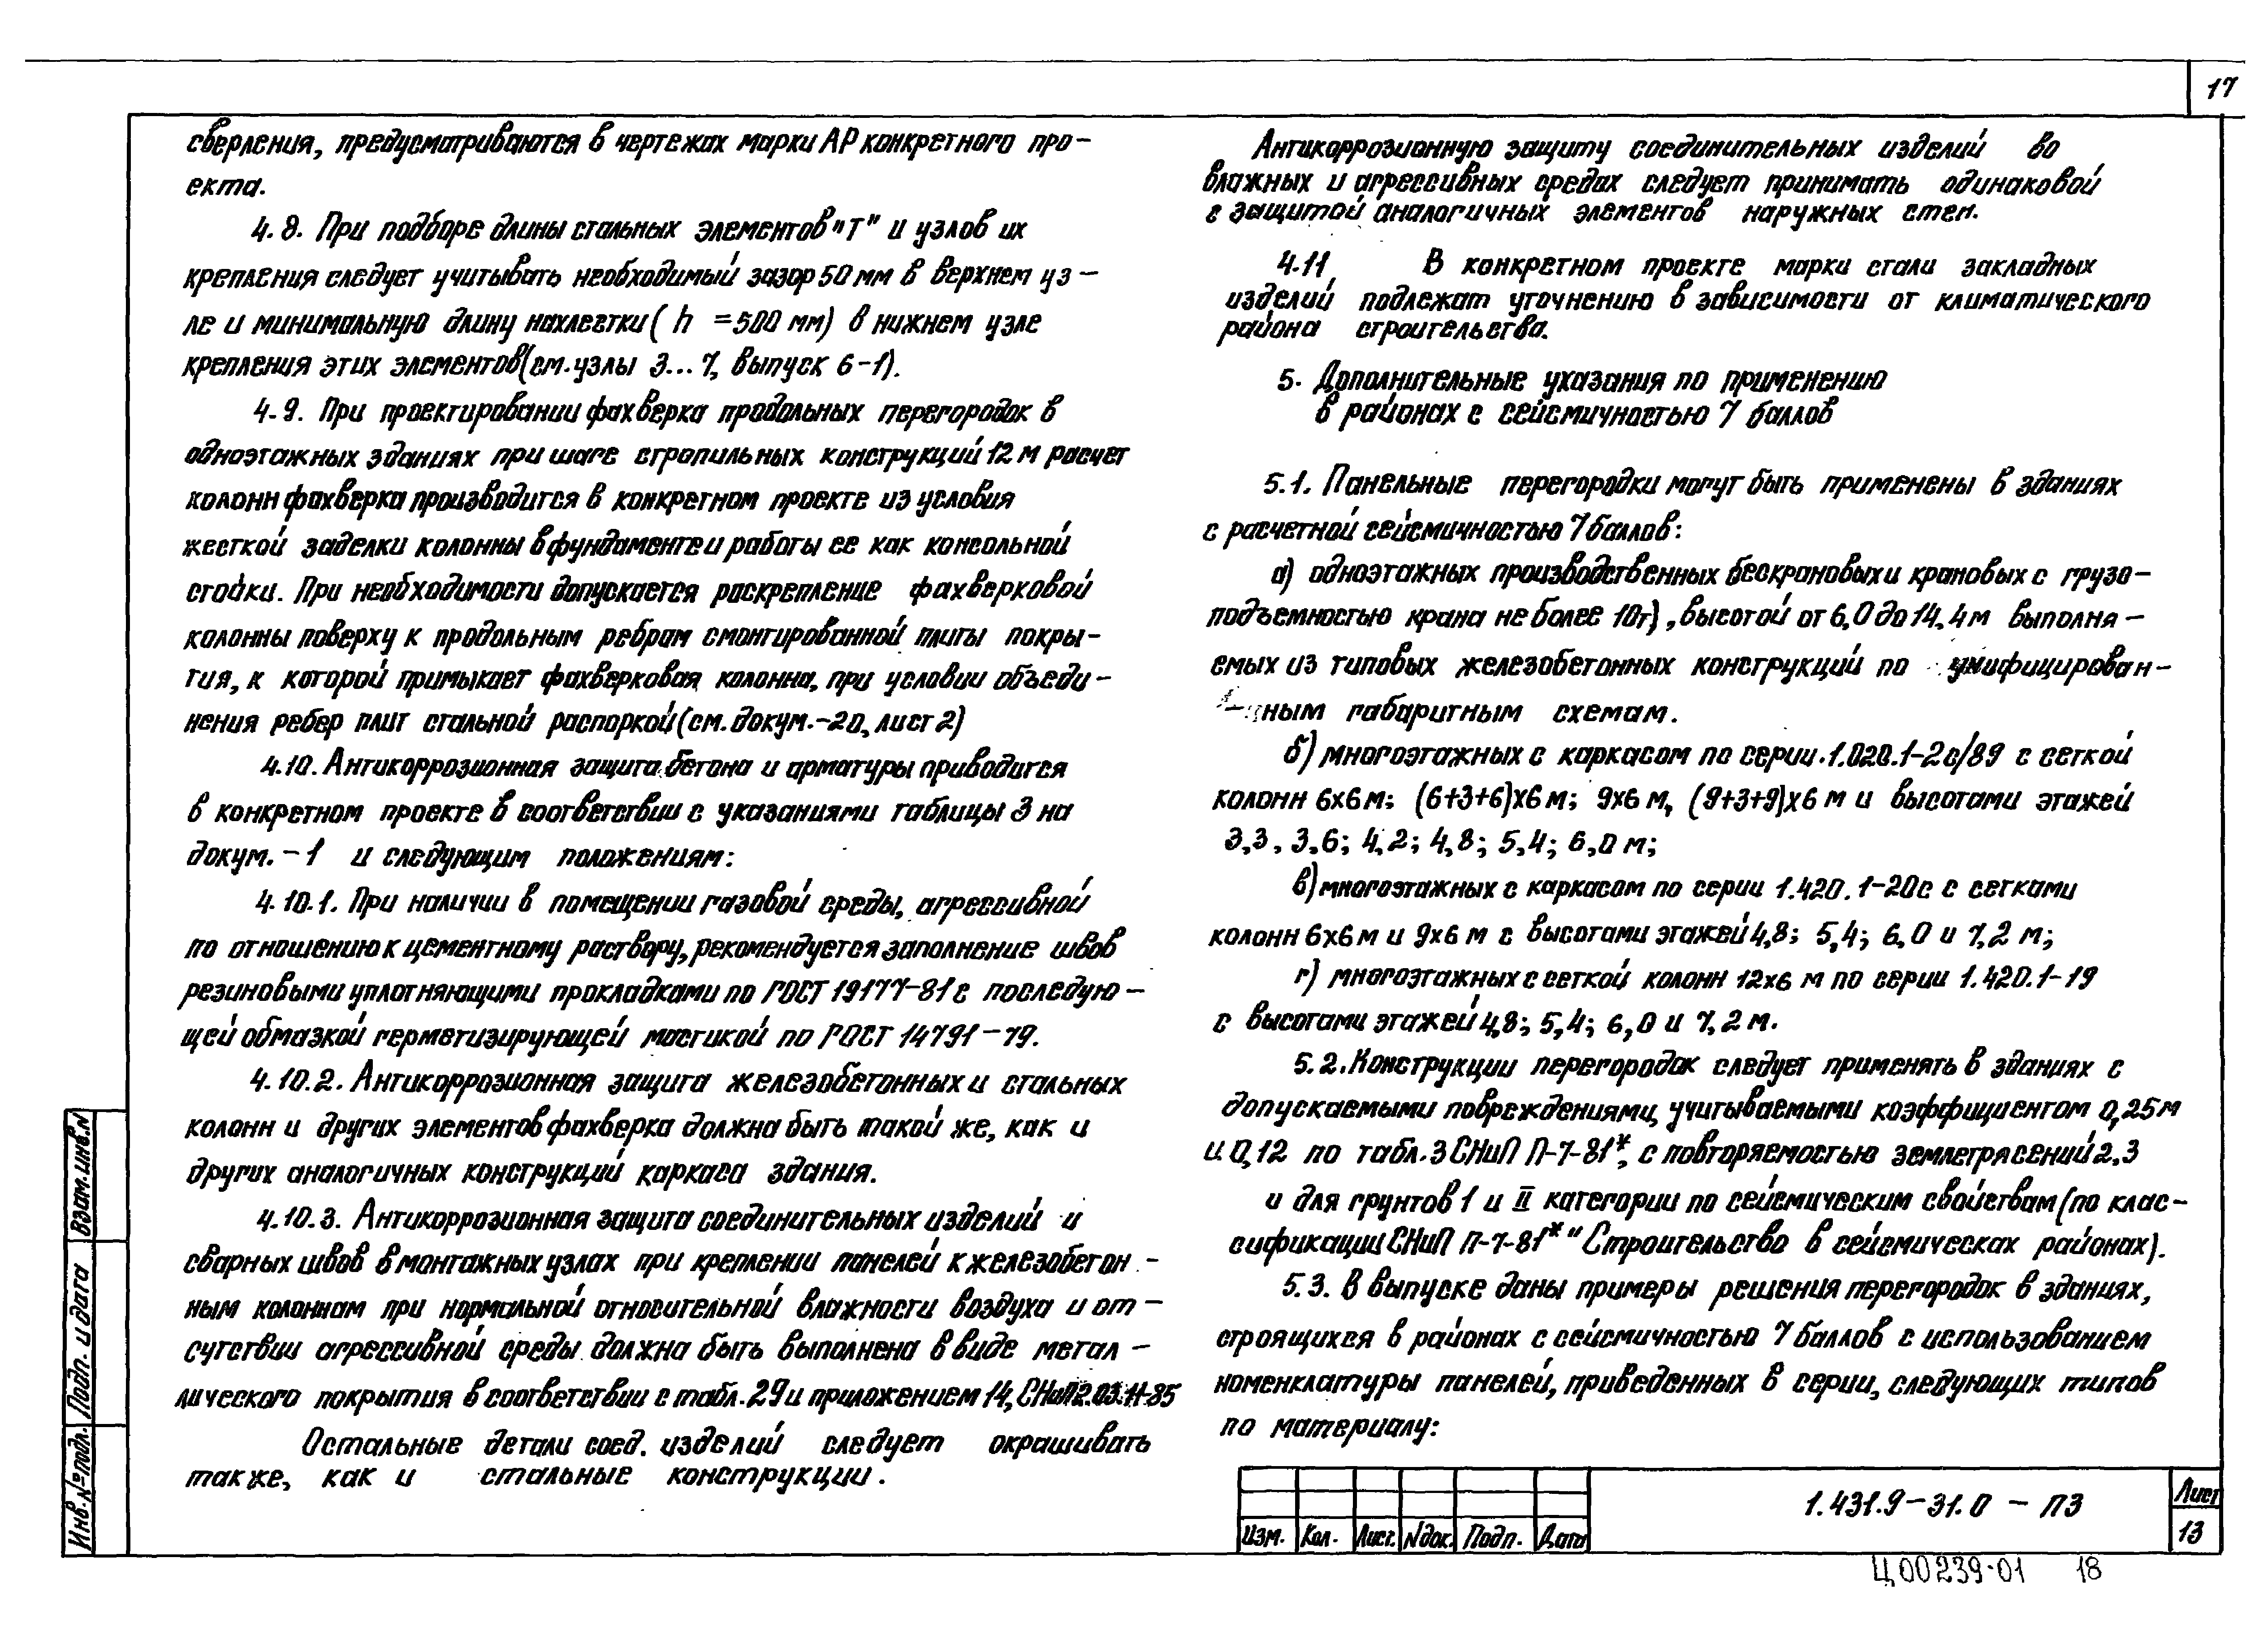 17
сверления, предусматриваются в чертежах марки АР конкретного про-
екта.
4.8. При подборе длины стальных элементов "Т" и узлов их
крепления следует учитывать необходимый зазор 50 мм в верхнем уз-
ле и минимальную длину нахлестки ( h = 500 мм) в нижнем узле
крепления этих элементов (см. узлы 3...7, выпуск 6-1).
4.9. При проектировании фахверка продольных перегородок в
одноэтажных зданиях при шаге стропильных конструкций 12 м расчет
колонн фахверка производится в конкретном проекте из условия
жесткой заделки колонны в фундаменте и работы ее как консольной
стойки. При необходимости допускается раскрепление фахверковой
колонны поверху к продольным ребрам смонтированной плиты покры-
тия, к которой примыкает фахверковая колонна, при условии объеди-
нения ребер плит стальной распоркой (см. докум.-20, лист 2)
4.10. Антикоррозионная защита бетона и арматуры приводится
в конкретном проекте в соответствии с указаниями таблицы 3 на
докум. -1 и следующим положениям:
4.10.1. При наличии в помещении газовой среды, агрессивной
по отношению к цементному раствору, рекомендуется заполнение швов
резиновыми уплотняющими прокладками по ГОСТ 19177-81 с последую-
щей обмазкой герметизирующей мастикой по ГОСТ 14791-79.
4.10.2. Антикоррозионная защита железобетонных и стальных
колонн и других элементов фахверка должна быть такой же, как и
других аналогичных конструкций каркаса здания.
4.10.3. Антикоррозионная защита соединительных изделий и
сварных швов в монтажных узлах при креплении панелей к железобетон-
ным колоннам при нормальной относительной влажности воздуха и от-
сутствии агрессивной среды должна быть выполнена в виде метал-
лического покрытия в соответствии с табл. 29 и приложением 14, СНиП 2.03.11-85
Остальные детали соед. изделий следует окрашивать
также, как и стальные конструкции.
Антикоррозионную защиту соединительных изделий во
влажных и агрессивных средах следует принимать одинаковой
с защитой аналогичных элементов наружных стен.
4.11 В конкретном проекте марки стали закладных
изделий подлежат уточнению в зависимости от климатического
района строительства.
5. Дополнительные указания по применению
в районах с сейсмичностью 7 баллов
5.1. Панельные перегородки могут быть применены в зданиях
с расчетной сейсмичностью 7 баллов:
а) одноэтажных производственных бескрановых и крановых с грузо-
подъемностью крана не более 10т), высотой от 6,0 до 14,4 м выполня-
емых из типовых железобетонных конструкций по унифицирован-
-ным габаритным схемам.
б) многоэтажных с каркасом по серии 1.020.1-2с/89 с сеткой
колонн 6х6 м; (6+3+6)х6 м; 9х6 м, (9+3+9)х6 м и высотами этажей
3,3, 3,6; 4,2; 4,8; 5,4; 6,0 м;
в) многоэтажных с каркасом по серии 1.420.1-20с с сетками
колонн 6х6 м и 9х6 м с высотами этажей 4,8; 5,4; 6,0 и 7,2 м;
г) многоэтажных с сеткой колонн 12х6 м по серии 1.420.1-19
с высотами этажей 4,8; 5,4; 6,0 и 7,2 м.
5.2. Конструкции перегородок следует применять в зданиях с
допускаемыми повреждениями, учитываемыми коэффициентом 0,25 м
и 0,12 по табл. 3 СНиП П-7-81*, с повторяемостью землетрясений 2.3
и для грунтов 1 и II категории по сейсмическим свойствам (по клас-
сификации СНиП П-7-81* "Строительство в сейсмическах районах).
5.3. В выпуске даны примеры решения перегородок в зданиях,
строящихся в районах с сейсмичностью 7 баллов с использованием
номенклатуры панелей, приведенных в серии, следующих типов
по материалу:
Инв. № подл. Подп. и дата Взам. инв. N
Изм. Кол. Лист. Nдок. Подп. Дата
1.431.9-31.0 - ПЗ
Лист
13
Ц00239-01 18